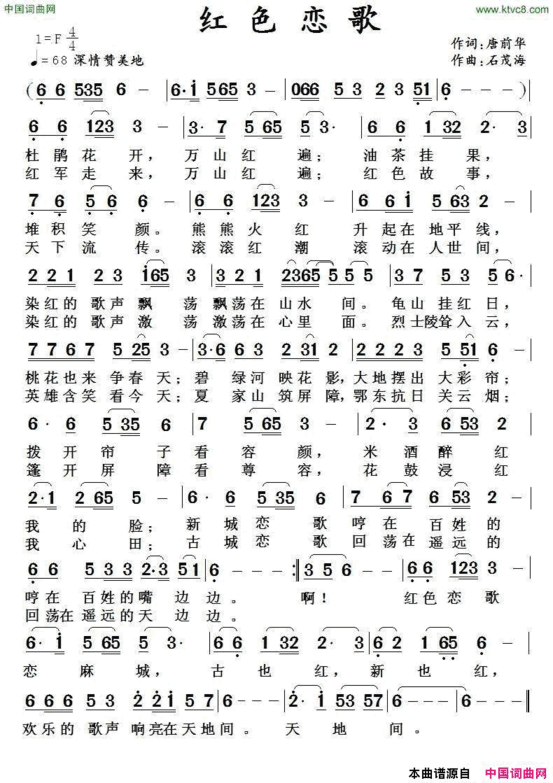 中国词曲网
红色恋歌
www.ktvc8.com
1=F 4/4
♩=68 深情赞美地
作词：唐前华
作曲：石茂海
(6 6 535 6 6 | 6· 1 565 3 — | 066 5 3 2 3 5 2 | 6 — — —) |
6 6 123 3 — | 3· 7 5 65 3 — | 6 6 1 32 2· 0 |
杜鹃花开，万山红遍；油茶挂果，
红军走来，万山红遍；红色故事，
7 6 5 6 6 — | 6 6 123 3 — | 6 6 1 5 6 5 3 — |
堆积笑颜。熊熊火红升起在地平线，
天下流传。滚滚红潮滚动在人世间，
2 2 1 2 3 i65 3 | 3 2 1 2365 5 5 5 | 3 7 5 3 5 6· |
染红的歌声飘荡飘荡在山水间。龟山挂红日，
染红的歌声激荡激荡在心里面。烈士陵耸入云，
7 7 6 7 5 25 3 — | 3·6 6 3 2 31 2 | 2 2 2 3 5 51 6 |
桃花也来争春天；碧绿河映花影，大地摆出大彩帘；
英雄含笑看今天；夏家山筑屏障，鄂东抗日关云烟；
6· 6 5 35 6 — | 7 5 65 3 — | 2· 3 6 53 2 |
拨开帘子看容颜，米酒醉红
篷开屏障看尊容，花鼓浸红
2·1 2 65 5 — | 6 6 5 35 6 — | 7 67 6 53 2 |
我的脸；新城恋歌哼在百姓的
我心田；古城恋歌回荡在遥远的
6 6 5 3 3 2·3 51 | 6 — — — :| 3 5 6 — | 6 6 123 3 |
哼在百姓的嘴边边。啊！红色恋歌
回荡在遥远的天边边。
6· i 5 65 5 3· | 6 6 1 32 2 — | 6 2 1 6 5 6 — |
恋麻城，古也红，新也红，
6 6 6 5 3 5 2 2i 5 7 | 6 — — — | 2· 1 53 57 | 6 — — — | 6 — — — ‖
欢乐的歌声响亮在天地间。天地间。
本曲谱源自 中国词曲网